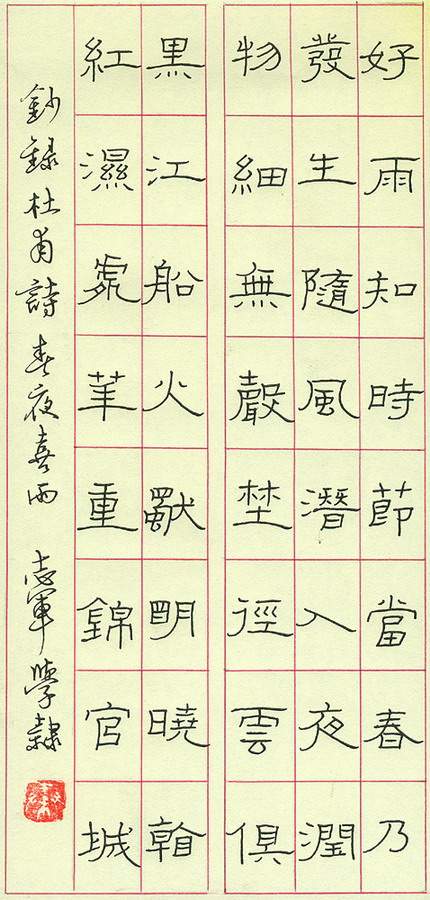 好雨知時莭當春乃
發生隨風潛入夜潤
物細無聲埜徑雲俱
黑江船火獨明曉看
紅濕處華重錦官城
鈔録杜甫詩春夜喜雨 志軍學隸